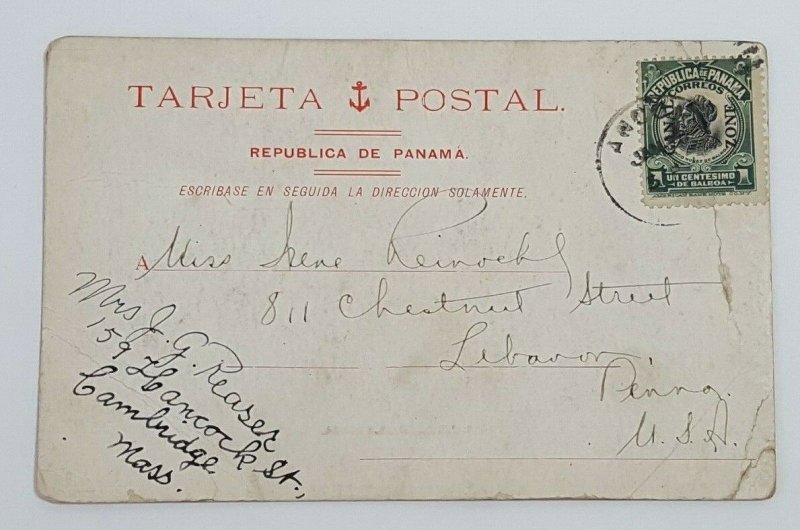 TARJETA POSTAL.
REPUBLICA DE PANAMÁ.
ESCRIBASE EN SEGUIDA LA DIRECCION SOLAMENTE.
REPUBLICA DE PANAMA
CORREOS
CANAL ZONE
1 UN CENTESIMO 1
DE BALBOA
ANCON
A Miss Irene Reinoehl
811 Chestnut Street
Lebanon,
Penna.
U.S.A.
Mrs J. G. Reaser
159 Hancock St.,
Cambridge
Mass.